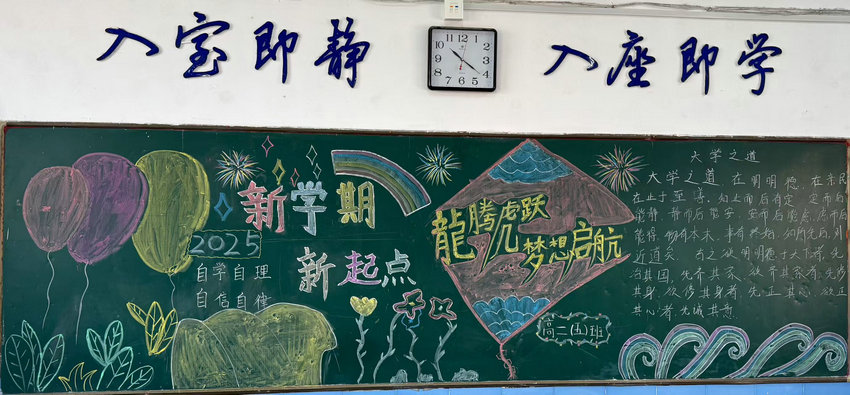 入室即静
入座即学
新学期
2025
新起点
自学自理
自信自律
龍腾虎跃
梦想启航
高二(五)班
大学之道
大学之道,在明明德,在亲民
在止于至善。知止而后有定,定而后
能静,静而后能安,安而后能虑,虑而后
能得。物有本末,事有终始,知所先后,则
近道矣。古之欲明明德于天下者,先
治其国,先齐其家,欲齐其家者,先修
其身,欲修其身者,先正其心,欲正
其心者,先诚其意.